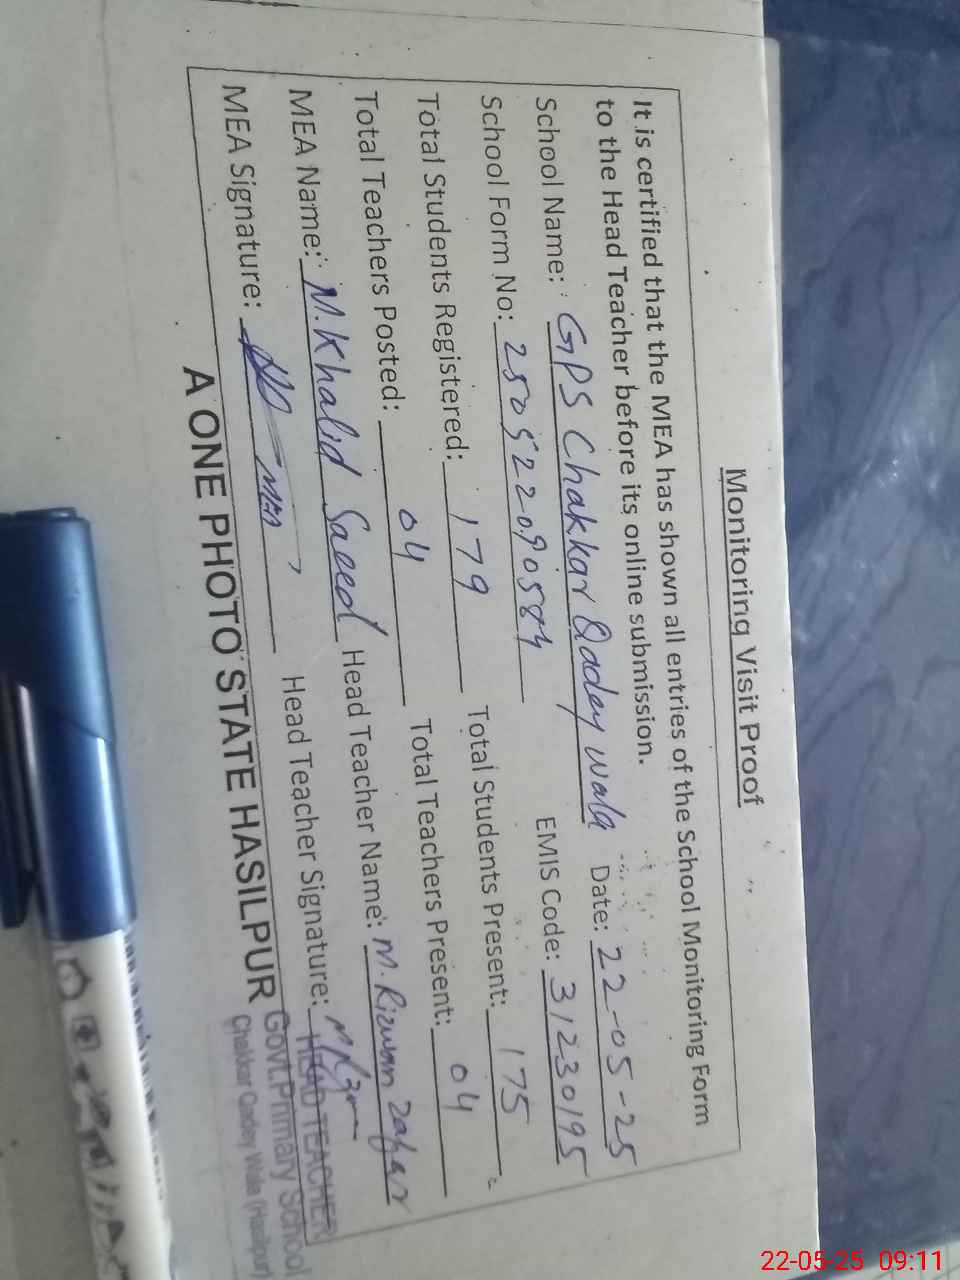 Monitoring Visit Proof
It is certified that the MEA has shown all entries of the School Monitoring Form
to the Head Teacher before its online submission.
School Name: GPS Chakkar Qadey wala Date: 22-05-25
School Form No: 250522090584 EMIS Code: 31230195
Total Students Registered: 179 Total Students Present: 175
Total Teachers Posted: 04 Total Teachers Present: 04
MEA Name: M. Khalid Saeed Head Teacher Name: M. Rizwan Zafar
MEA Signature: MEA Head Teacher Signature:
HEAD TEACHER
Govt. Primary School
Chakkar Qadey Wala (Hasilpur)
A ONE PHOTO STATE HASILPUR
22-05-25 09:11